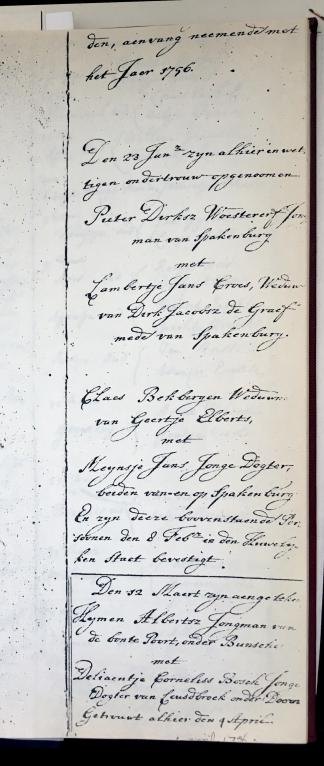 den, aenvang neemende met
het Jaer 1756.
Den 23 Jan.r zyn alhier in wet-
tigen ondertrouw opgenoomen
Pieter Dirksz Woestererf Jon
man van Spakenburg
met
Lambertje Jans Croes, Weduw
van Dirk Jacobsz de Graef
mede van Spakenburg.
Claes Bekbergen Weduwn.
van Geertje Elberts,
met
Meynsje Jans Jonge Dogter,
beiden van en op Spakenburg
En zyn deeze boovenstaende Per
soonen den 8 Feb.r in den Huwely
ken staet bevestigt.
Den 12 Maert zyn aengeteken
Hymen Albertsz Jongman van
de bonte Poort, onder Bunscho
met
Deliaentje Corneliss Bosch Jonge
Dogter van Leusdbroek onder Doorn
Getrouwt alhier den 4 April.